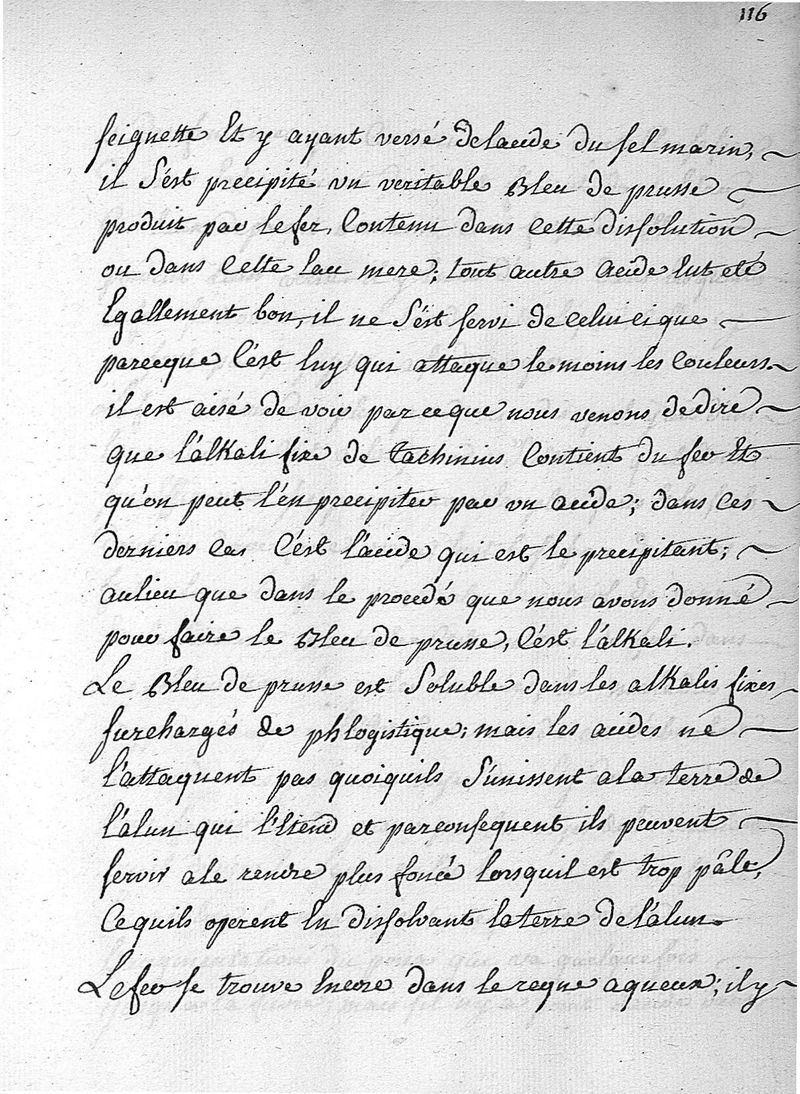 116
seignette Et y ayant versé delacide du sel marin,
il S'est precipité un veritable Bleu de prusse
produit par lefer, Contenu dans cette dissolution
ou dans Cette Eau mere; tout autre acide Eut été
Egallement bon, il ne S'est servi de celui ci que
parceque C'est luy qui attaque lemoins les Couleurs.
il est aisé de voir par ceque nous venons dedire
que l'alkali fixe de tachinius Contient du fer Et
qu'on peut l'en precipiter par un acide; dans ces
derniers Cas C'est l'acide qui est le precipitant;
aulieu que dans le procedé que nous avons donné
pour faire le Bleu de prusse, C'est l'alkali.
Le Bleu de prusse est Soluble dans les alkalis fixes
surchargés de phlogistique; mais les acides ne
l'attaquent pas quoiquils S'unissent a la terre de
l'alun qui l'Etend et parconsequent ils peuvent
servir ale rendre plus foncé lorsquil est trop pâle,
Cequils operent En dissolvant laterre de l'alun.
Lefer se trouve Encore dans leregne aqueux; il y